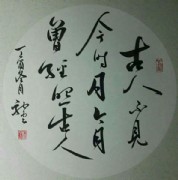 古人不見
今时月今月
曾經照古人
丁酉冬月